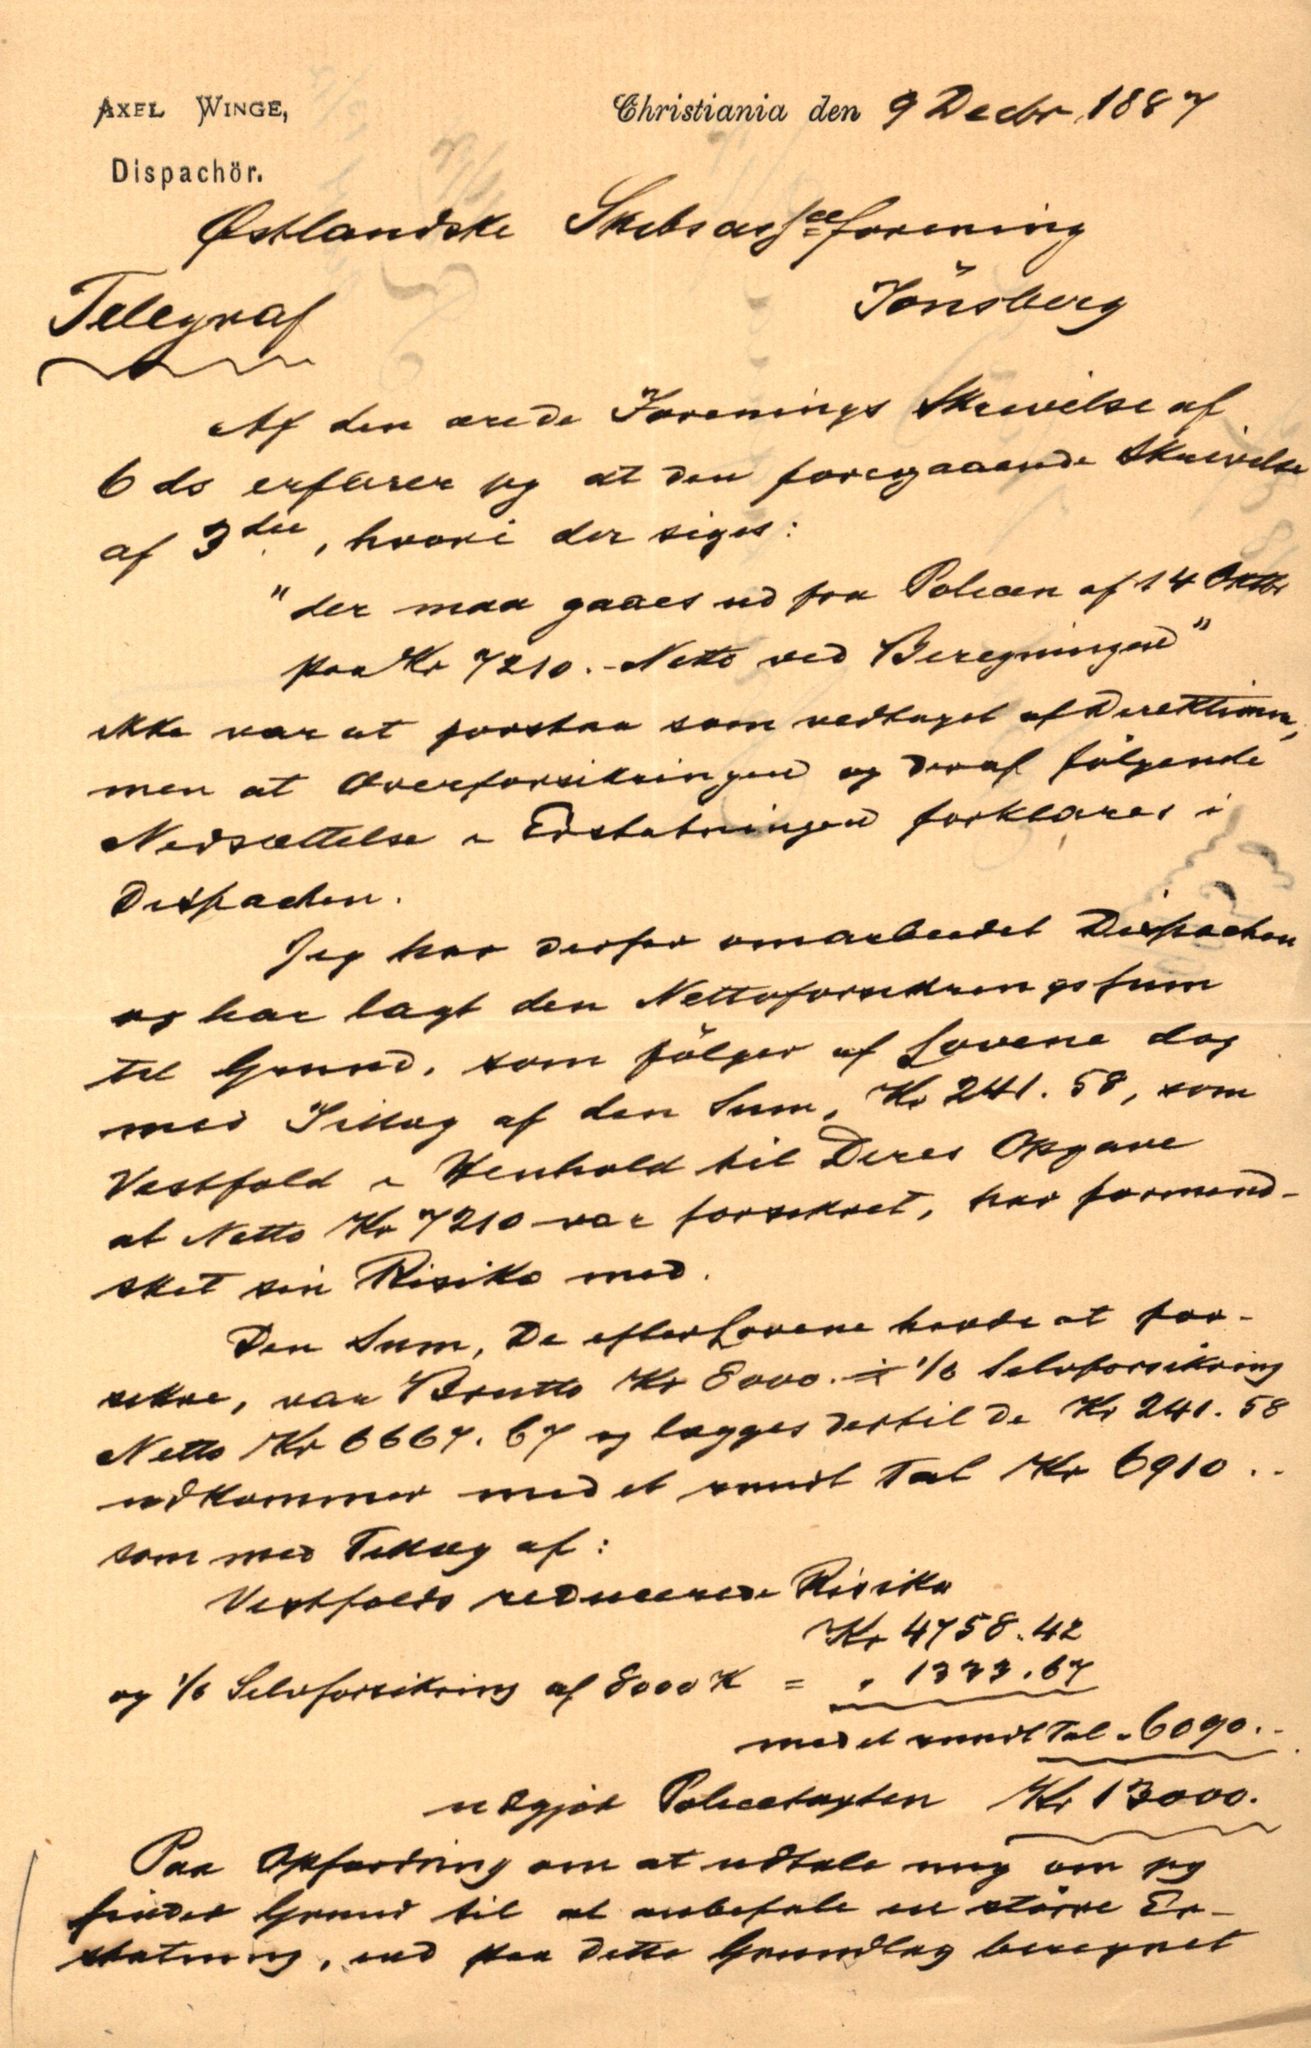 AXEL WINGE,
Dispachör.
Christiania den 9 Decbr. 1887
Østlandske Skibsassceforening
Tönsberg
Telegraf
Af den ærede Forenings Skrivelse af
6 ds erfarer jeg at den foregaaende Skrivelse
af 3die, hvori der siges:
"der maa gaaes ud fra Policen af 14 Oktbr
paa Kr 7210.- Netto ved Beregningen"
ikke var at forstaa som vedtaget af Direktionen,
men at Overforsikringen og deraf følgende
Nedsættelse i Erstatningen forklares i
Dispachen.
Jeg har derfor omarbeidet Dispachen
og har lagt den Nettoforsikringssum
til Grund, som fölger af Lovene dog
med Tillæg af den Sum, Kr 241.58, som
Vestfold i Henhold til Deres Opgave
at Netto Kr 7210 var forsikret, har formind-
sket sin Risiko med.
Den Sum, De efter Lovene havde at for-
sikre, var Brutto Kr 8000. ÷ 1/6 Selvforsikring
Netto Kr 6667.67 og lægges dertil de Kr 241.58
udkommer med et rundt Tal Kr 6910..
som med Tillæg af:
Vestfolds reducerede Risiko
Kr 4758.42
og 1/6 Selvforsikring af 8000 K = " 1333.67
med et rundt Tal " 6090..
udgjör Policetaxten Kr 13000.
Paa Opfordring om at udtale mig om jeg
finder Grund til at anbefale en större Er-
statning, end paa dette Grundlag beregnet